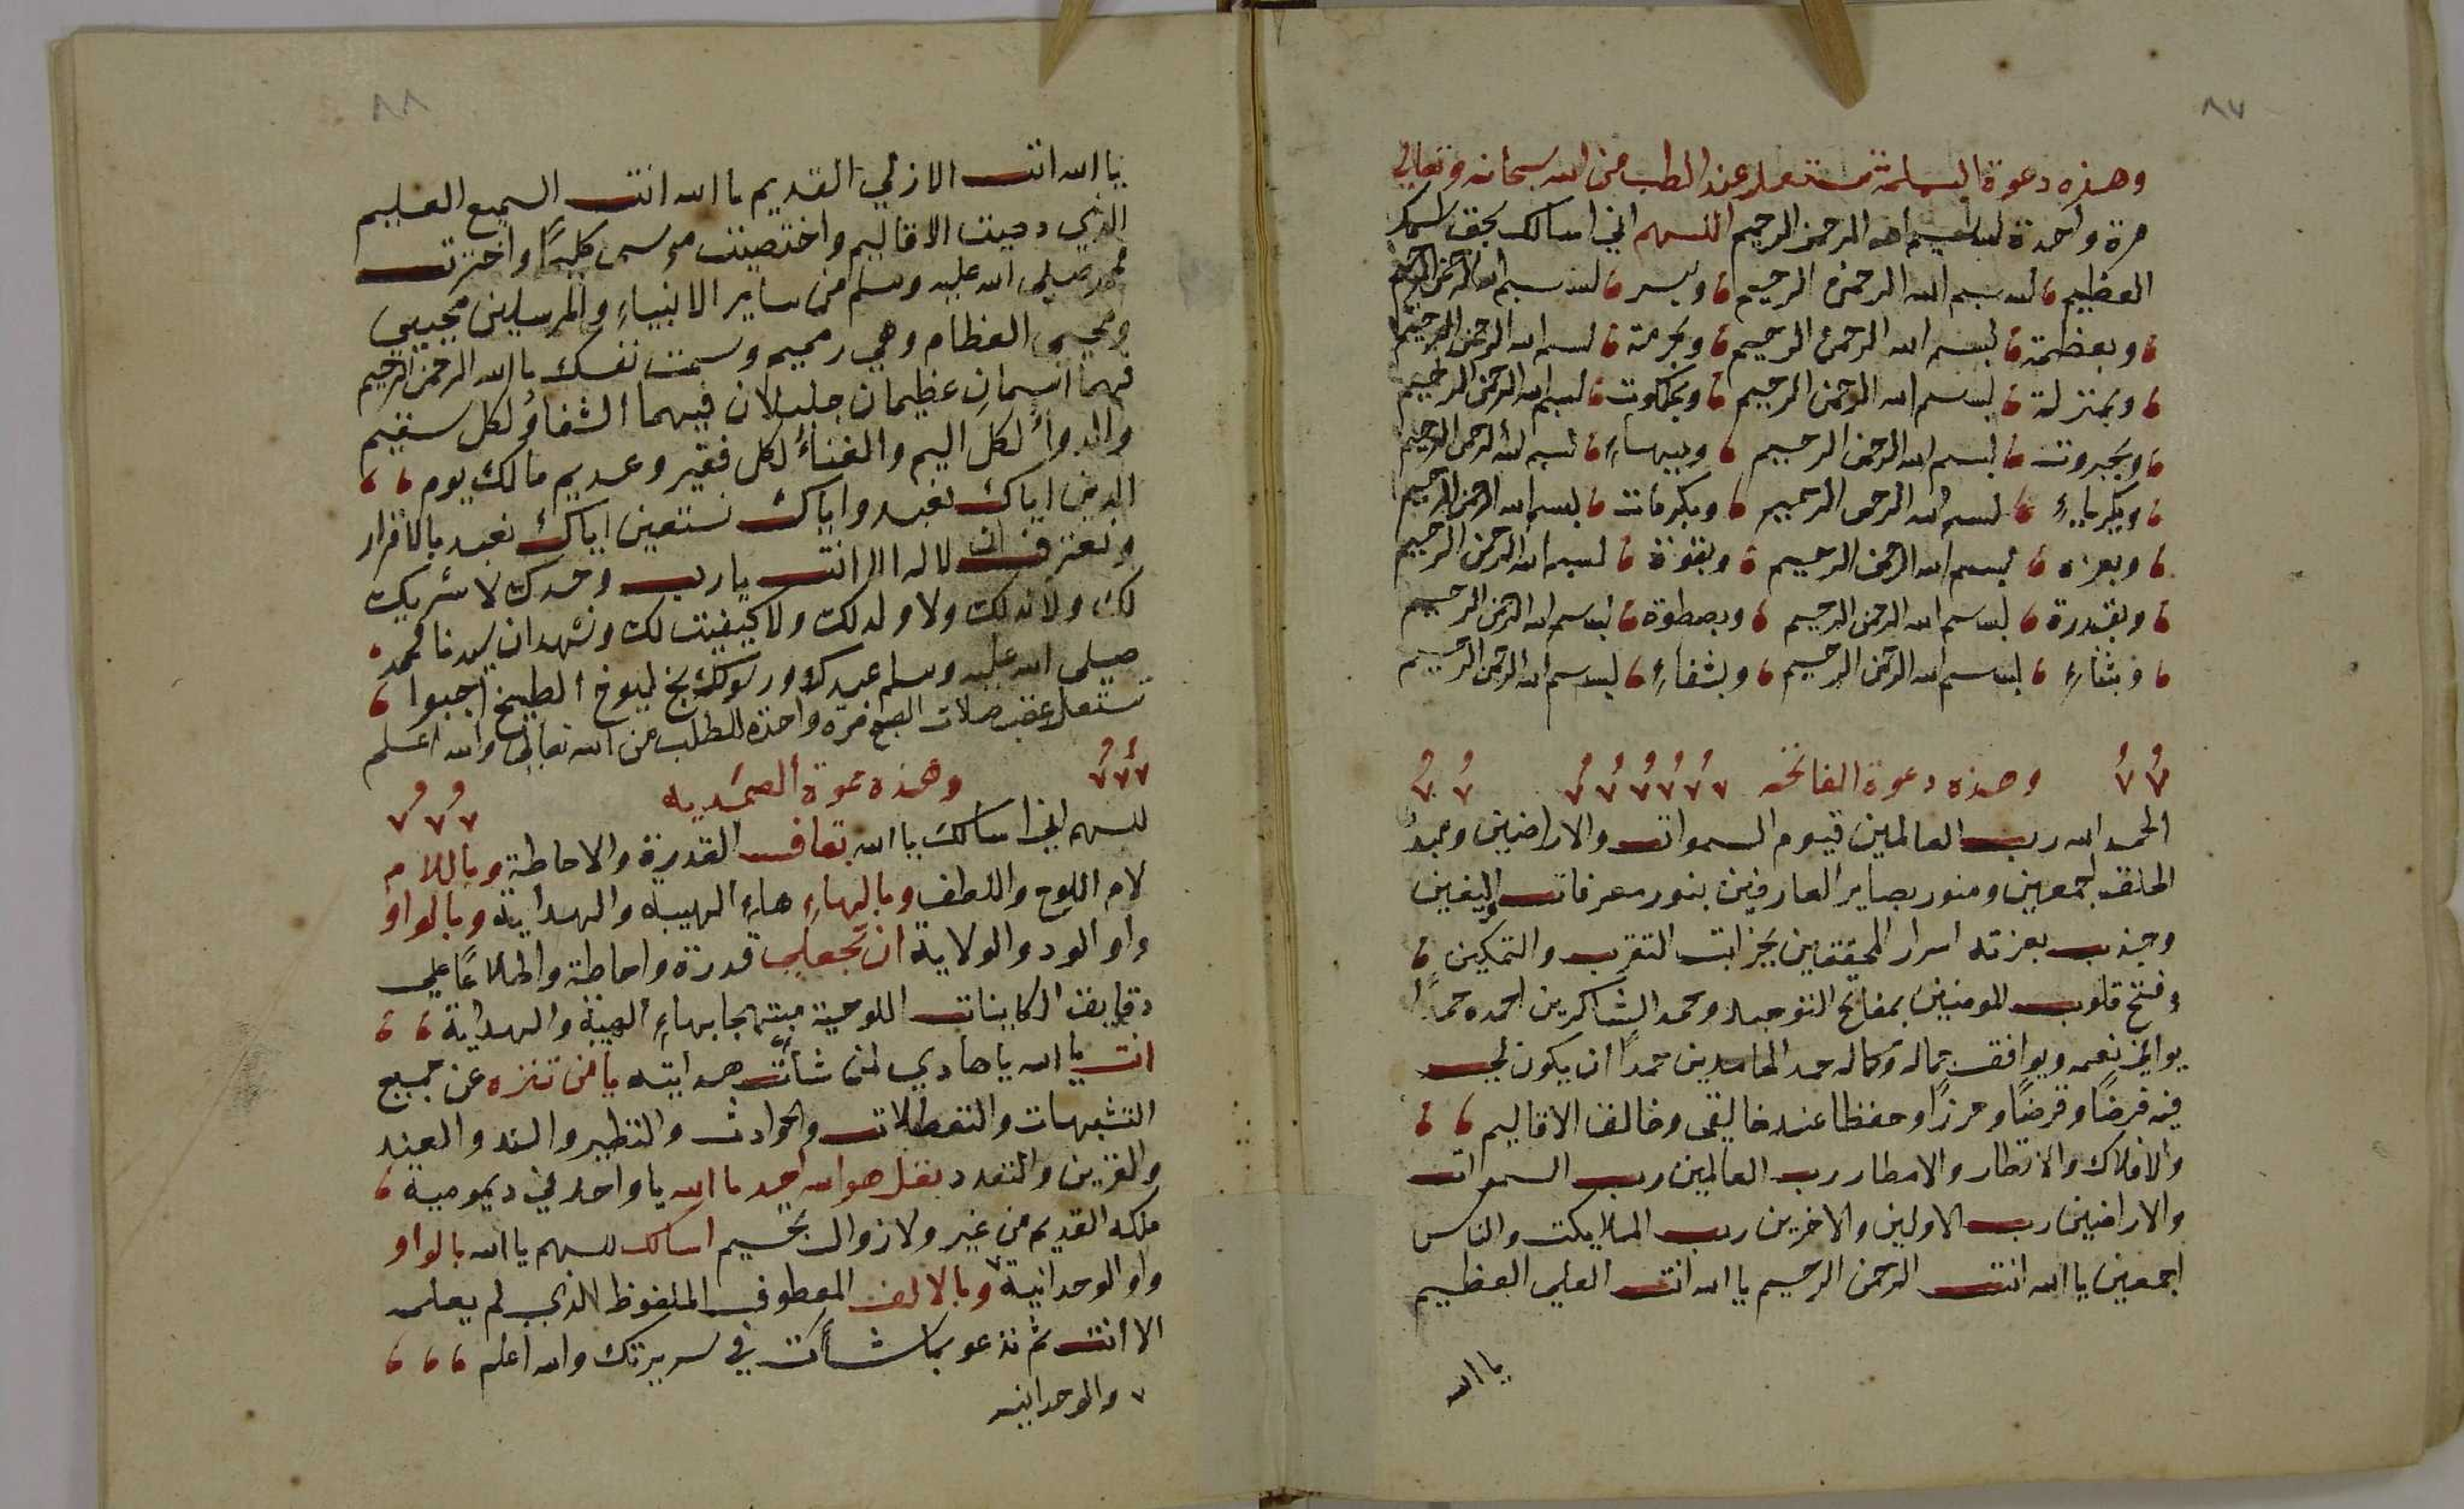 ٨٧
وهذه دعوة البسملة تستعمل عند الطلب من الله سبحانه وتعالى
مرة واحدة بسم الله الرحمن الرحيم اللهم اني اسالك بحق اسمك
العظيم بسم الله الرحمن الرحيم وبسر بسم الله الرحمن الرحيم
وبعظمة بسم الله الرحمن الرحيم وبحرمة بسم الله الرحمن الرحيم
وبمنزلة بسم الله الرحمن الرحيم وبملكوت بسم الله الرحمن الرحيم
وبجبروت بسم الله الرحمن الرحيم وببهاءِ بسم الله الرحمن الرحيم
وبكبرياءِ بسم الله الرحمن الرحيم وبكرمات بسم الله الرحمن الرحيم
وبعزه بسم الله الرحمن الرحيم وبقوة بسم الله الرحمن الرحيم
وبقدرة بسم الله الرحمن الرحيم وبصطوة بسم الله الرحمن الرحيم
وبثناءِ بسم الله الرحمن الرحيم وبشفاءِ بسم الله الرحمن الرحيم
وهذه دعوة الفاتحه
الحمد الله رب العالمين قيوم السموات والاراضين
الخلق اجمعين ومنور بصاير العارفين بنور معرفات اليقين
وجذب بعزته اسرار المحققين بجزابت التقرب والتمكين
وفتح قلوب المومنين بمفاتح التوحيد وحمد الشاكرين احمده حمدًا
يوافي نعمه ويوافق جماله وكماله حمد الحامدين حمدًا ان يكون لي
فيه فرضًا وقرضًا وحرزًا وحفظا عند خالقى وخالق الاقاليم
والافلاك والاقطار والامطار رب العالمين رب السموات
والاراضين رب الاولين والاخرين رب الملايكت والناس
اجمعين يا الله انت الرحمن الرحيم يا الله انت العلي العظيم
يا الله
٨٨
يا الله انت الازلي القديم يا الله انت السميع العليم
الذي دحيت الاقاليم واختصيت موسى كليمًا واخترت
محمد صلى الله عليه وسلم من ساير الانبياءِ والمرسلين
ومحيى العظام وهي رميم وسمت نفسك يا الله الرحمن الرحيم
فهما اسمان عظيمان جليلان فيهما الشفاؤ لكل سقيم
والدواءُ لكل اليم والغناءُ لكل فقير وعديم مالك يوم
الدين اياك نعبد واياك نستعين اياك نعبد بالاقرار
ونعترف ان لا له الا انت يا رب وحدك لا شريك
لك ولا ند لك ولا ولد لك ولا كيفيت لك ونشهد ان سيدنا محمد
صلى الله عليه وسلم عبدك ورسولك اجيبوا
تستعمل عقب صلات الصبح مره واحدة للطلب من الله تعالى والله اعلم
وهذه دعوة الصمديه
للهم اني اسالك يا الله بقاف القدرة والاحاطة وباللام
لام اللوح واللطف وبالهاءِ هاءِ الهيبه والهداية وبالواو
واو الود والولاية ان تجعلي قدرة واحاطة واطلاعًا على
دقايق الكاينات اللوحية مبتهجا بهاءِ الهيبة والهداية
انت يا الله يا هادي لمن شأت هدايته يا من تنزه عن جميع
التشبهات والتعطلات والحوادث والنظير والند والعند
والقرين والتعدد بقل هو الله احد يا الله يا واحد في ديمومية
ملكه القديم من غير ولا زوال اسالك للهم يا الله بالواو
واو الوحدانية وبالالف المعطوف الملفوظ الذي لم يعلمه
الا انت ثم تدعو بما شأت في سريرتك والله اعلم
والوحدانيه